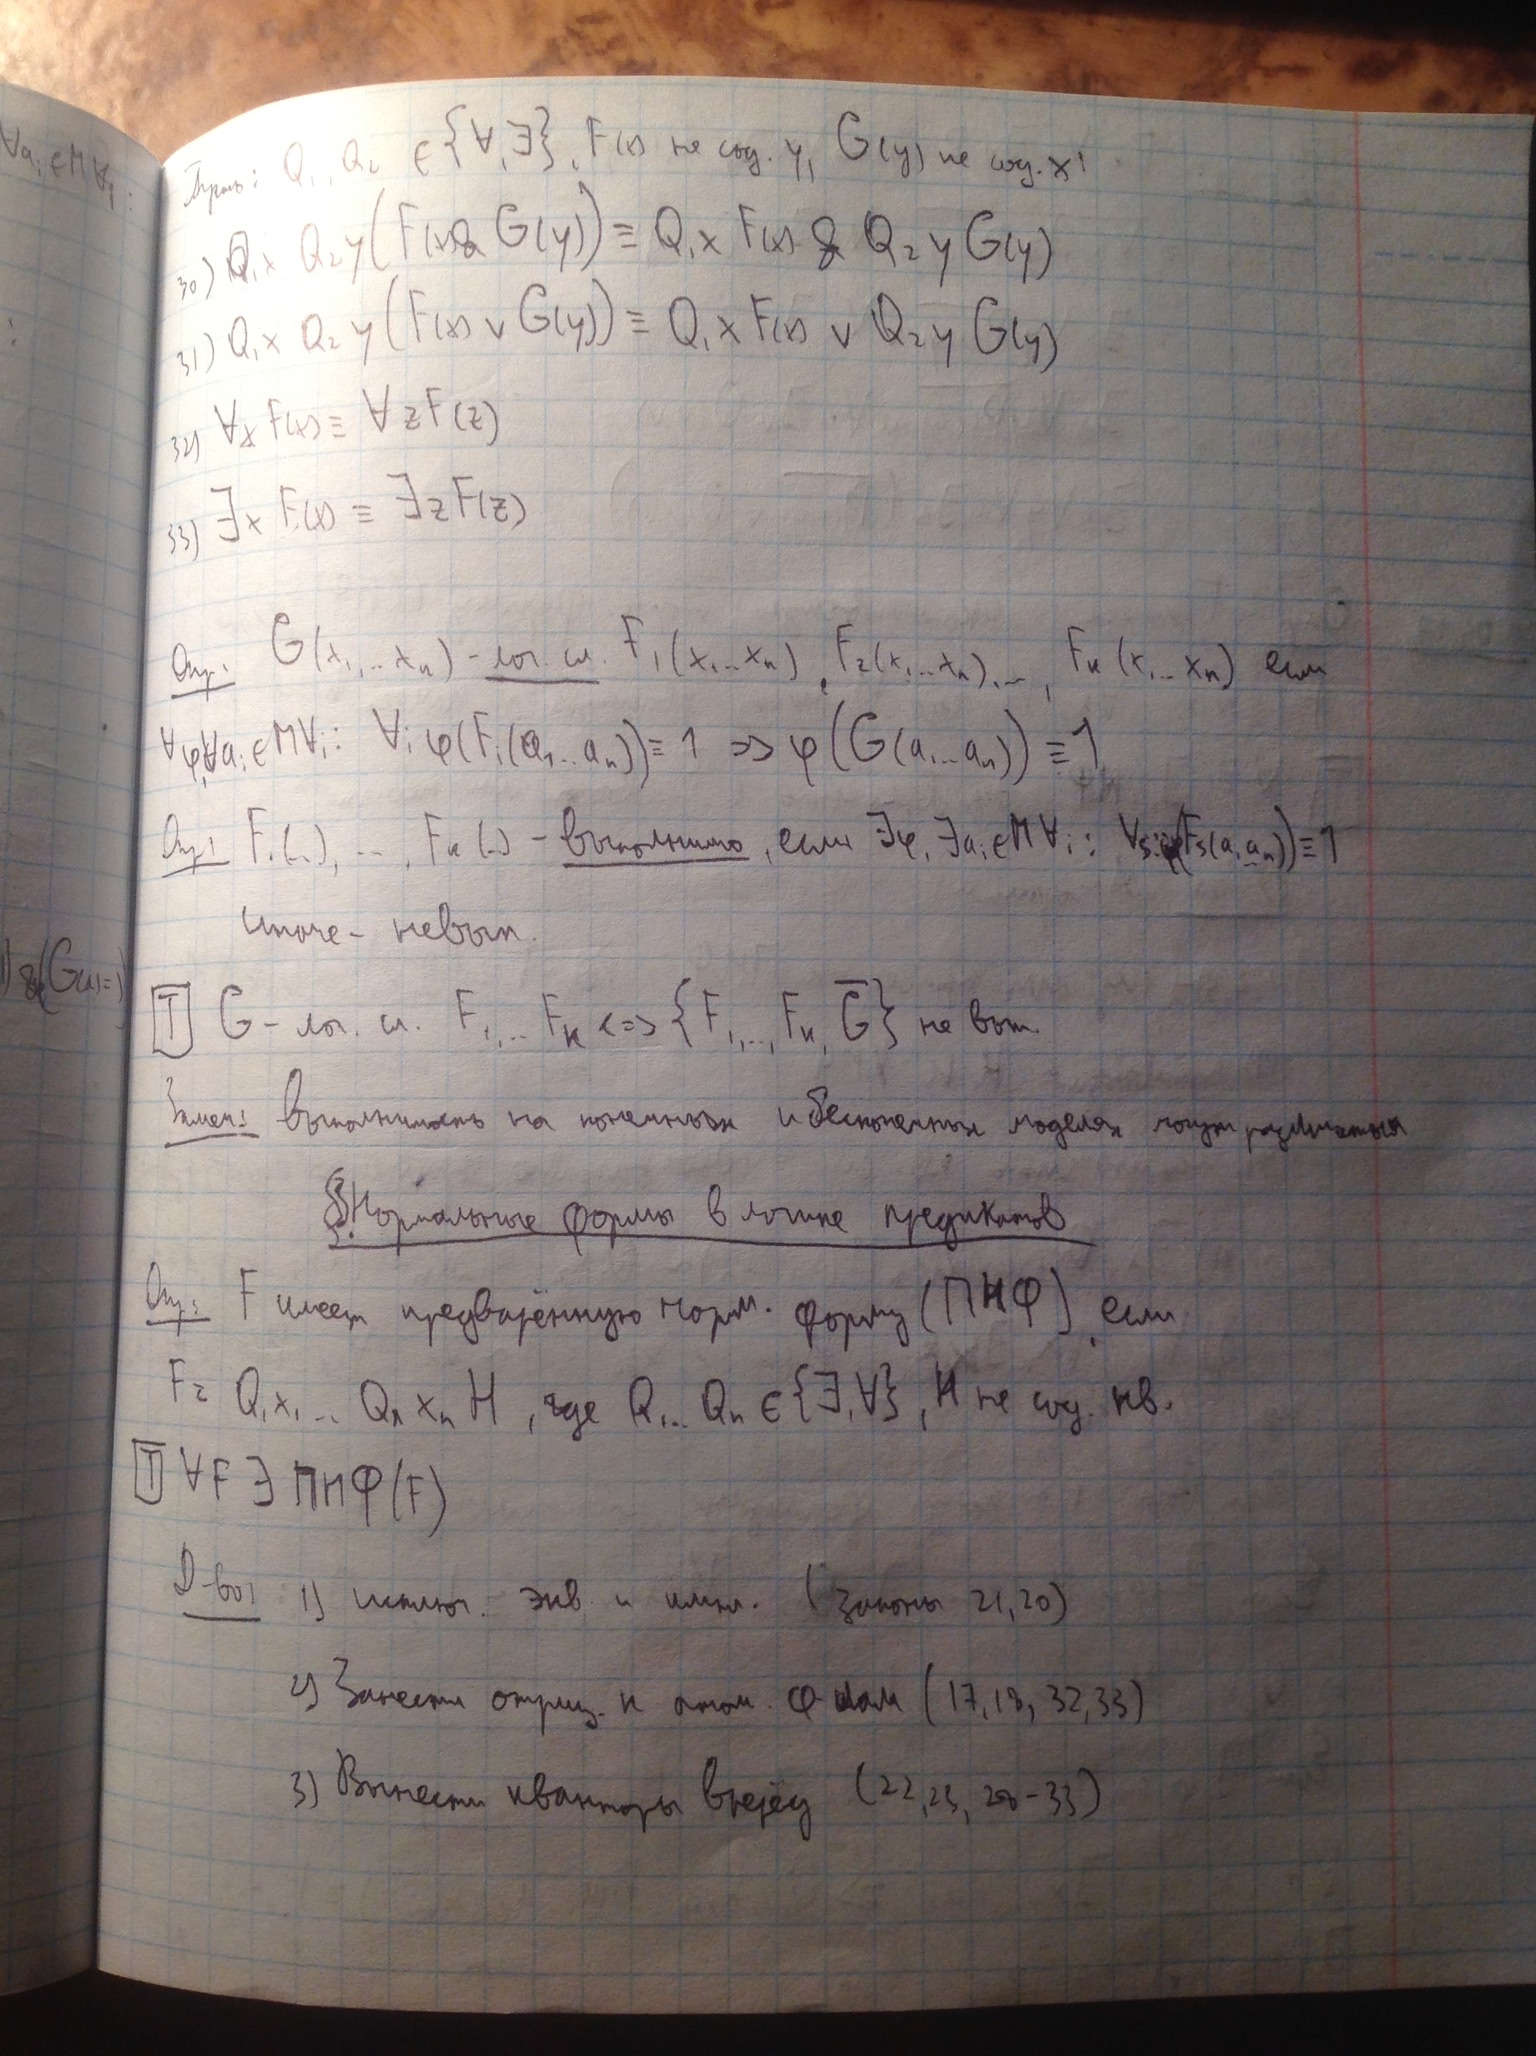 ∀a_i∈M ∀_i :
Пусть: Q₁, Q₂ ∈ {∀,∃}, F(x) не сод. y, G(y) не сод. x:
30) Q₁x Q₂y (F(x) & G(y)) ≡ Q₁x F(x) & Q₂y G(y)
31) Q₁x Q₂y (F(x) ∨ G(y)) ≡ Q₁x F(x) ∨ Q₂y G(y)
32) ∀x F(x) ≡ ∀z F(z)
33) ∃x F(x) ≡ ∃z F(z)
Опр: G(x₁,...xₙ) - лог. сл. F₁(x₁...xₙ), F₂(x₁...xₙ),..., Fₖ(x₁...xₙ) если
∀φ, ∀a_i∈M ∀_i: ∀_i φ(F_i(a₁...aₙ)) ≡ 1 => φ(G(a₁...aₙ)) ≡ 1
Опр: F₁(...), ..., Fₖ(...) - выполнимо, если ∃φ, ∃a_i∈M ∀_i: ∀s: φ(F_s(a₁ aₙ)) ≡ 1
иначе - невып.
&(G(x)=1)
T G - лог. сл. F₁,...Fₖ <=> {F₁,..., Fₖ, G̅} не вып.
Замеч: Выполнимость на конечных и бесконечных моделях может различаться
§. Нормальные формы в логике предикатов
Опр: F имеет предварённую норм. форму (ПНФ), если
F = Q₁x₁... Qₙxₙ H, где Q₁... Qₙ ∈ {∃,∀}, H не сод. кв.
T ∀F ∃ ПНФ(F)
Д-во: 1) исключ. экв. и импл. (Законы 21,20)
2) Занести отриц. к атом. ф-лам (17,18, 32,33)
3) Вынести кванторы вперёд (22,23, 28-33)